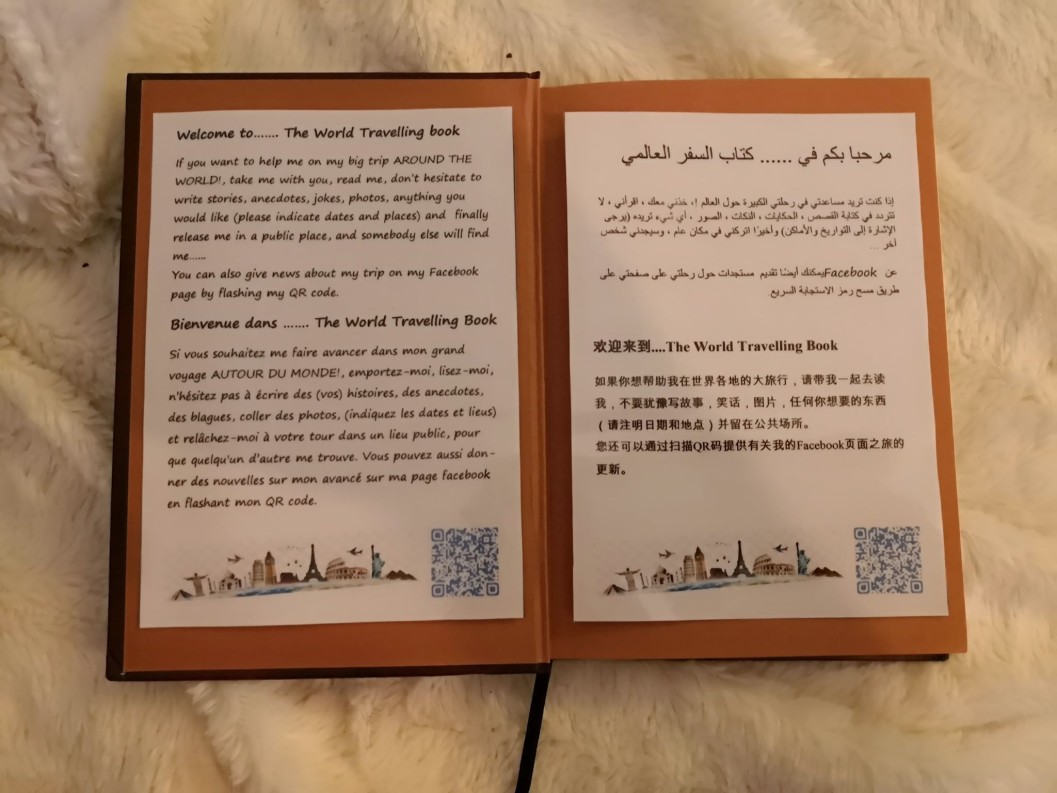 Welcome to....... The World Travelling book
If you want to help me on my big trip AROUND THE
WORLD!, take me with you, read me, don't hesitate to
write stories, anecdotes, jokes, photos, anything you
would like (please indicate dates and places) and finally
release me in a public place, and somebody else will find
me......
You can also give news about my trip on my Facebook
page by flashing my QR code.
Bienvenue dans ....... The World Travelling Book
Si vous souhaitez me faire avancer dans mon grand
voyage AUTOUR DU MONDE!, emportez-moi, lisez-moi,
n'hésitez pas à écrire des (vos) histoires, des anecdotes,
des blagues, coller des photos, (indiquez les dates et lieus)
et relâchez-moi à votre tour dans un lieu public, pour
que quelqu'un d'autre me trouve. Vous pouvez aussi don-
ner des nouvelles sur mon avancé sur ma page facebook
en flashant mon QR code.
مرحبا بكم في ...... كتاب السفر العالمي
إذا كنت تريد مساعدتي في رحلتي الكبيرة حول العالم !، خذني معك ، اقرأني ، لا
تتردد في كتابة القصص ، الحكايات ، النكات ، الصور ، أي شيء تريده (يرجى
الإشارة إلى التواريخ والأماكن) وأخيرًا اتركني في مكان عام ، وسيجدني شخص
آخر ...
عن Facebookيمكنك أيضًا تقديم مستجدات حول رحلتي على صفحتي على
طريق مسح رمز الاستجابة السريع.
欢迎来到....The World Travelling Book
如果你想帮助我在世界各地的大旅行，请带我一起去读
我，不要犹豫写故事，笑话，图片，任何你想要的东西
（请注明日期和地点）并留在公共场所。
您还可以通过扫描QR码提供有关我的Facebook页面之旅的
更新。